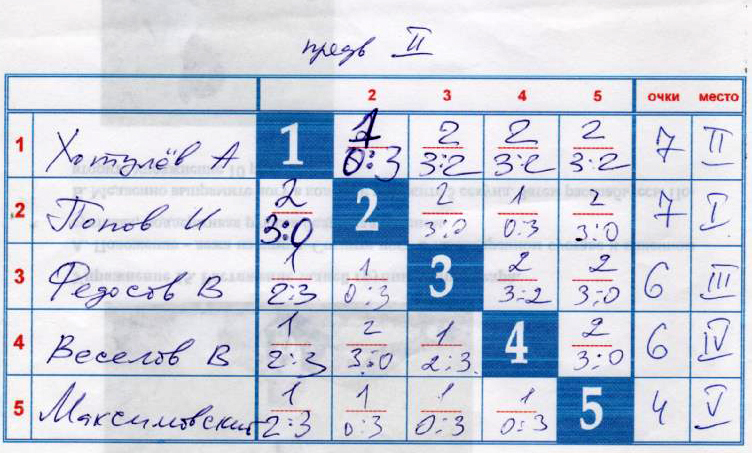 предв II
2 3 4 5 очки место
1 Хотулёв А 1 1 2 2 2 7 II
0:3 3:2 3:2 3:2
2 Попов И 2 2 2 1 2 7 I
3:0 3:0 0:3 3:0
3 Федосов В 1 1 3 2 2 6 III
2:3 0:3 3:2 3:0
4 Веселов В 1 2 1 4 2 6 IV
2:3 3:0 2:3 3:0
5 Максимовский 1 1 1 1 5 4 V
2:3 0:3 0:3 0:3